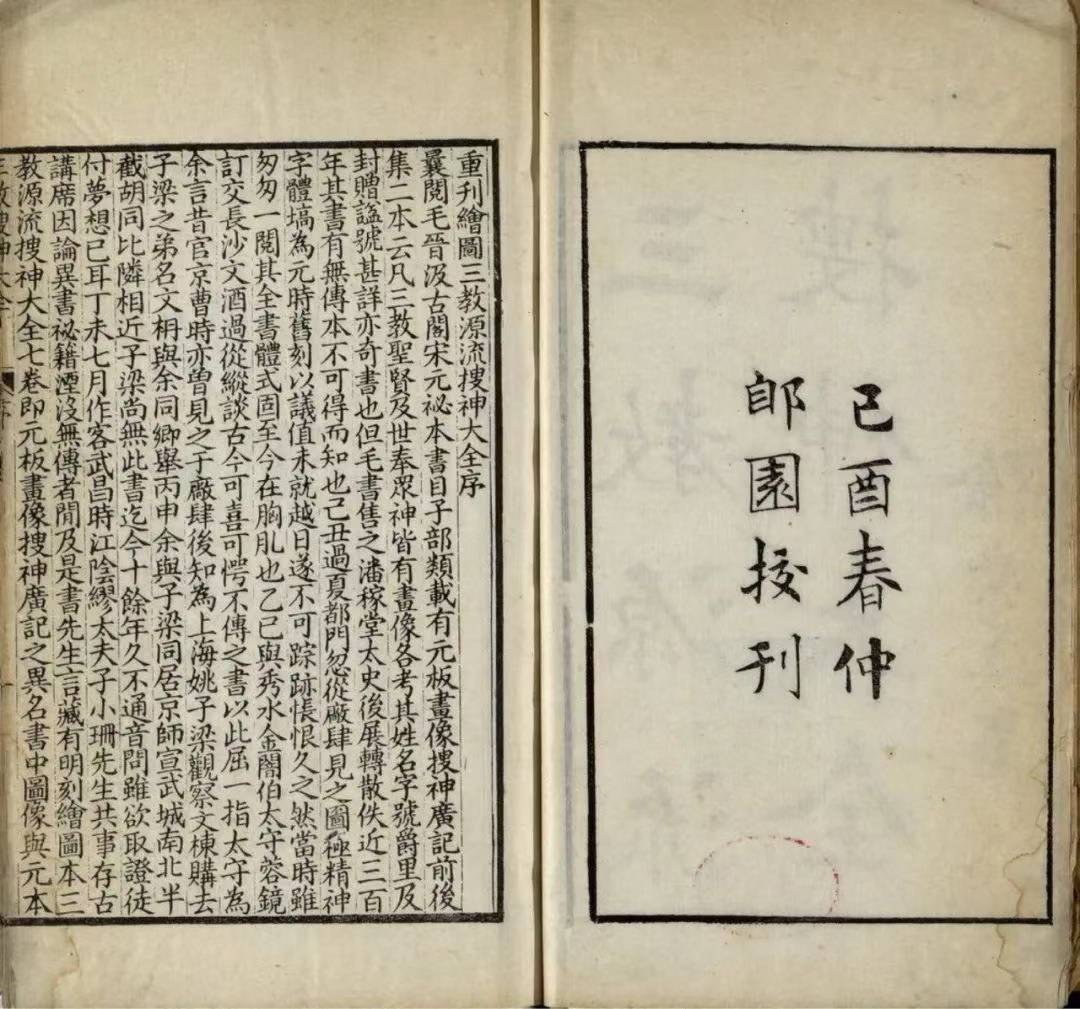 己酉春仲
郋園挍刊
重刊繪圖三教源流搜神大全序
曩閱毛晉汲古閣宋元祕本書目子部類載有元板畫像搜神廣記前後
集二本云凡三教聖賢及世奉眾神皆有畫像各考其姓名字號爵里及
封贈諡號甚詳亦奇書也但毛書售之潘稼堂太史後展轉散佚近三百
年其書有無傳本不可得而知也己丑過夏都門忽從廠肆見之圖極精神
字體塙為元時舊刻以議值未就越日遂不可踪跡悵恨久之然當時雖
匆匆一閱其全書體式固至今在胸肊也乙巳與秀水金闇伯太守蓉鏡
訂交長沙文酒過從縱談古今可喜可愕不傳之書以此屈一指太守為
余言昔官京曹時亦曾見之于廠肆後知為上海姚子梁觀察文棟購去
子梁之弟名文枬與余同鄉舉丙申余與子梁同居京師宣武城南北半
截胡同比隣相近子梁尚無此書迄今十餘年久不通音問雖欲取證徒
付夢想已耳丁未七月作客武昌時江陰繆太夫子小珊先生共事存古
講席因論異書祕籍湮沒無傳者閒及是書先生言藏有明刻繪圖本三
教源流搜神大全七卷即元板畫像搜神廣記之異名書中圖像與元本